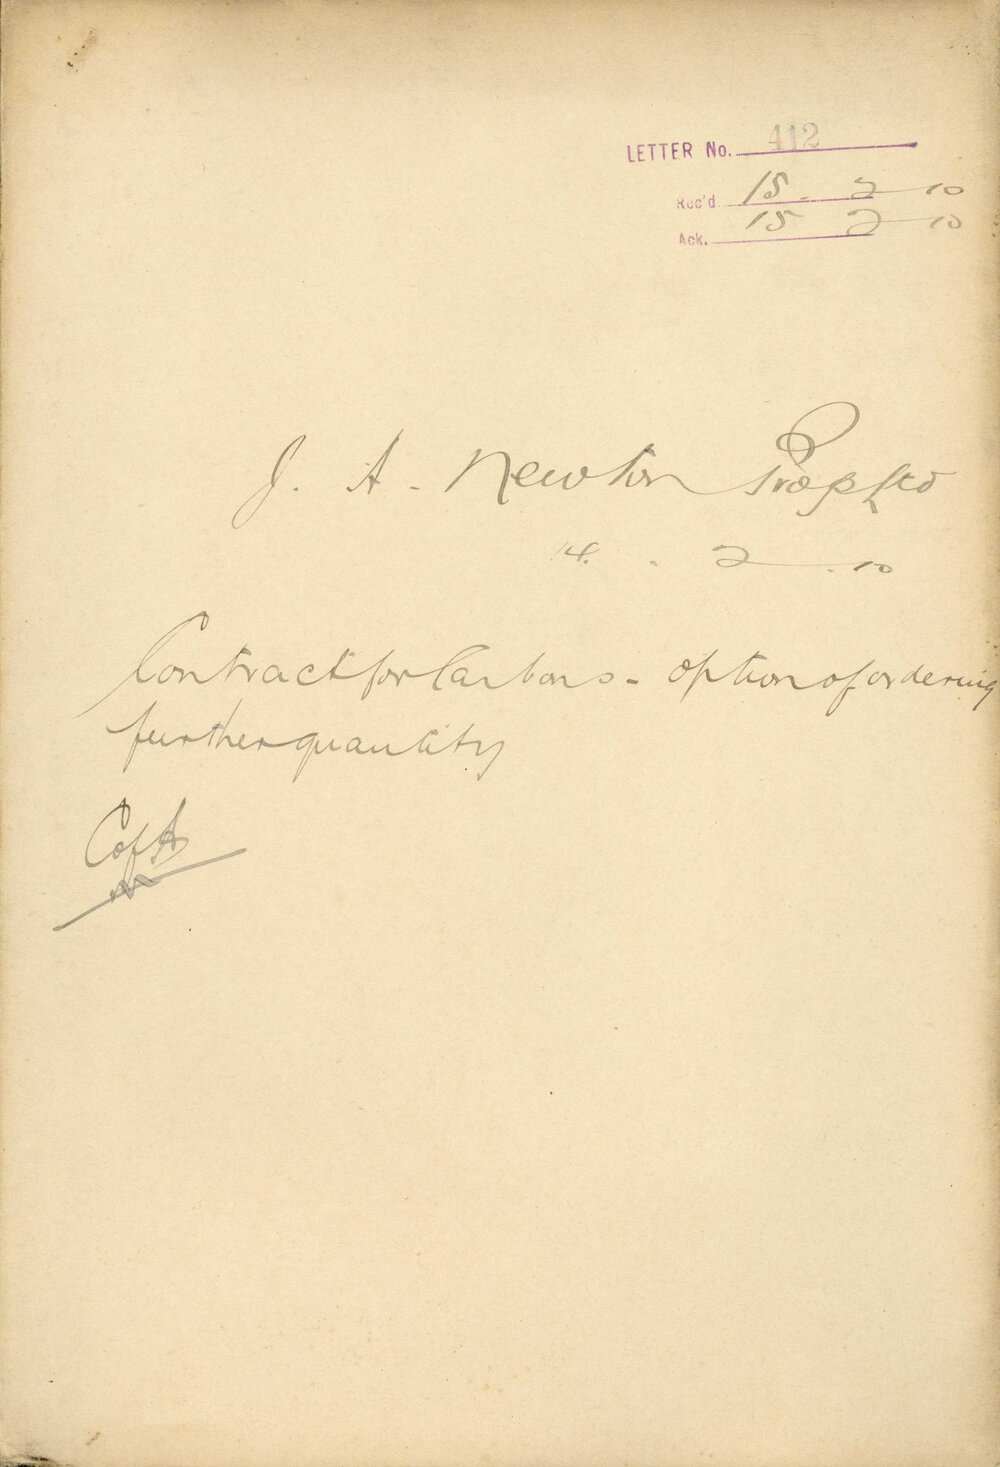 LETTER No. 412
Rec'd 15 . 2 10
Ack. 15 2 10
J. A. Newton Prop Ltd
14. . 2 . 10
Contract for Carbons - option of ordering
further quantity
C of A